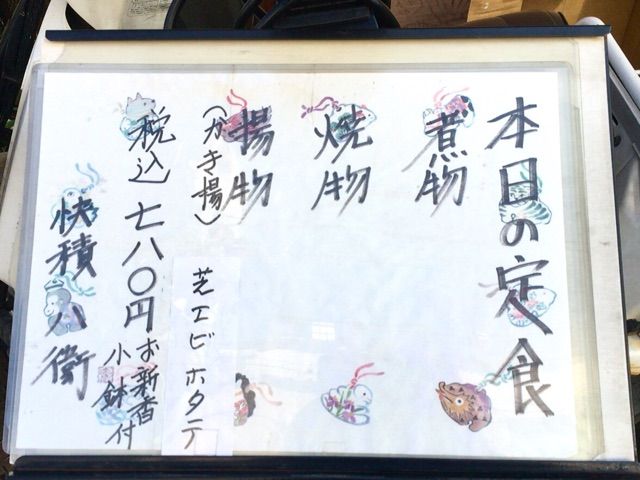 本日の定食
煮物
焼物
揚物
(かき揚)
芝エビ ホタテ
税込)七八〇円
お新香
小鉢付
快積八衛